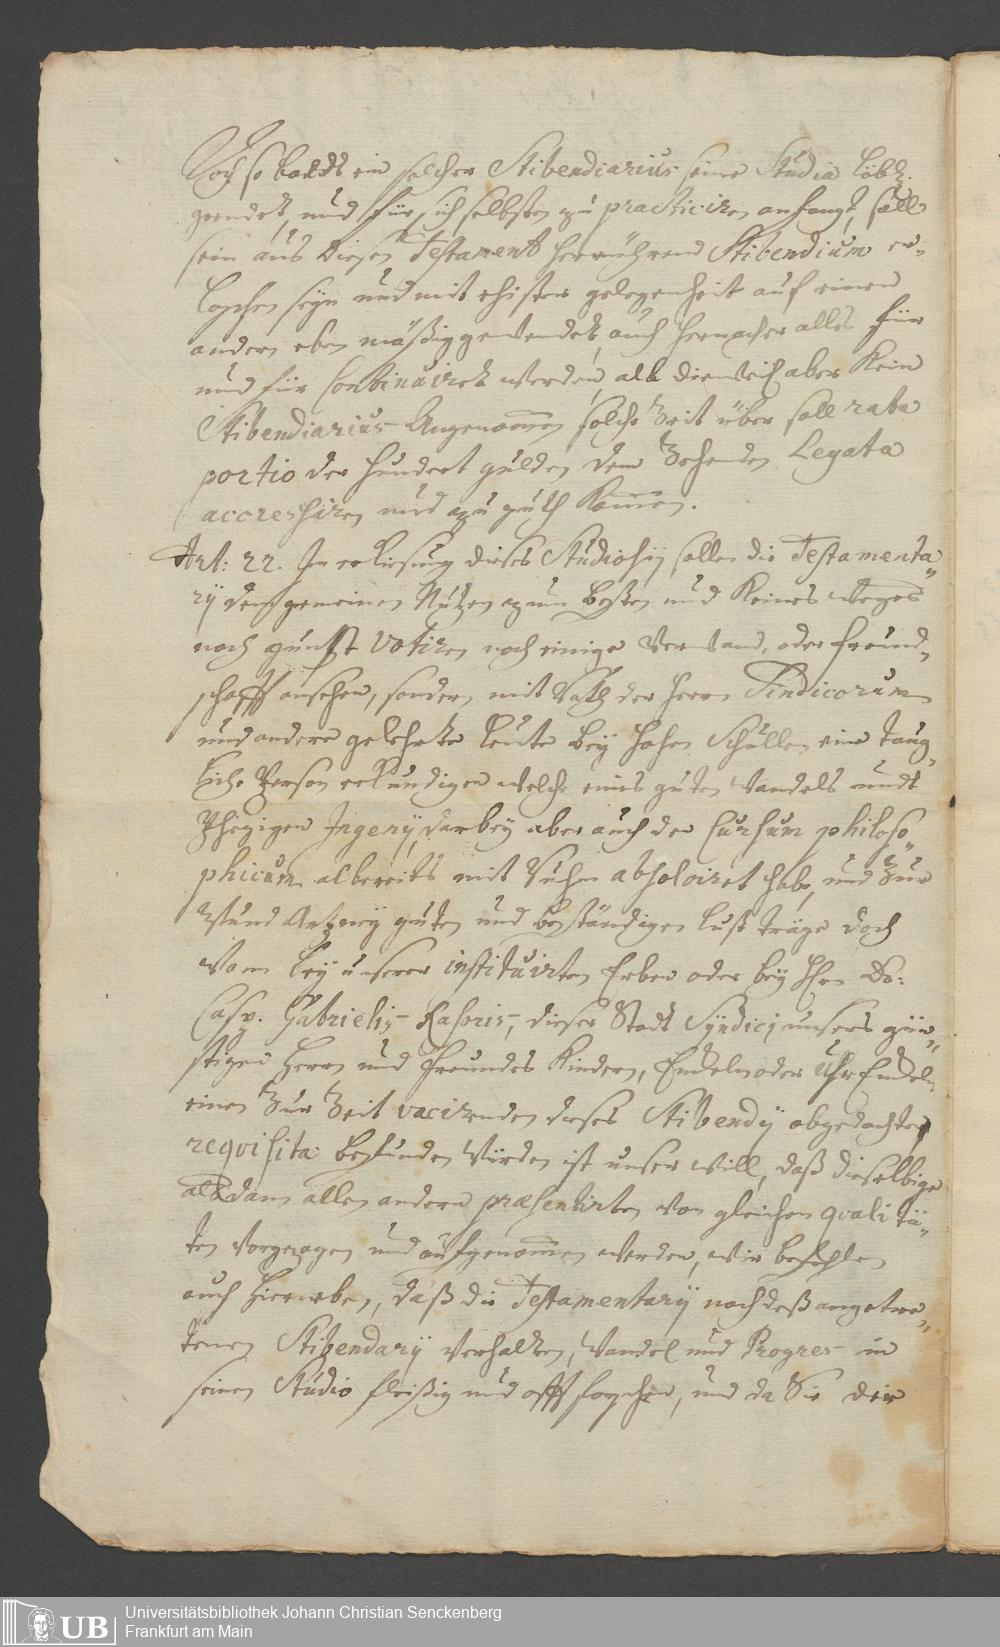 Doch so baldt ein solcher Stibendiarius seine Studia löbl:
geendet, und für sich selbsten zu practiciren anfangt, soll
sein aus diesen Testament herrührend Stibendium er-
loschen seyn und mit ehister gelegenheit auf einen
andern eben mäßig gewendet, auch hernacher alles für
und für Continuiret werden, all dieweil aber Kein
Stibendiarius Angenommen solche Zeit über soll rata
portio der hundert gulden dem Legata
accresciren und zu guth Kommen.
Art: 22. In erkiesung dieses Studiosij sollen die Testamenta„
rij dem gemeinen Nutzen zum besten und Keines weges
nach gunst votiren noch einige Verwand, oder freund„
schafft ansehen, sondern mit Rath der Herrn Sindicorum
und andere gelehrte leute bey hohen Schullen eine taug„
liche Person erkundigen welche eines guten Wandels undt
Ingenij, darbey aber auch den Cursum philoso„
phicum albereits mit Ruhm absolviret habe, und Zur
Wund Artzney guten und beständigen lust trage doch
Wann bey unseren instituirten Erben oder bey Hrn Dr:
Casp. Gabrielis dieser Stadt Syndicj unsers gün„
stigen Herrn und freundes Kindern, Enckeln oder UhrEnckeln
einen Zur Zeit vacirenden dieses Stibendij obgedachter
requisita befunden würden ist unser will, daß dieselbige
alßdann allen andern præsentirten von gleichen qualitä„
ten vorgezogen und aufgenommen werden, wir befehlen
auch hierneben, daß die Testamentarij nach deß angetre„
tenen Stibendarij Verhalten, Wandel und Progres in
seinen Studio fleißig und offt forschen, und da Sie der
Universitätsbibliothek Johann Christian Senckenberg
Frankfurt am Main
UB